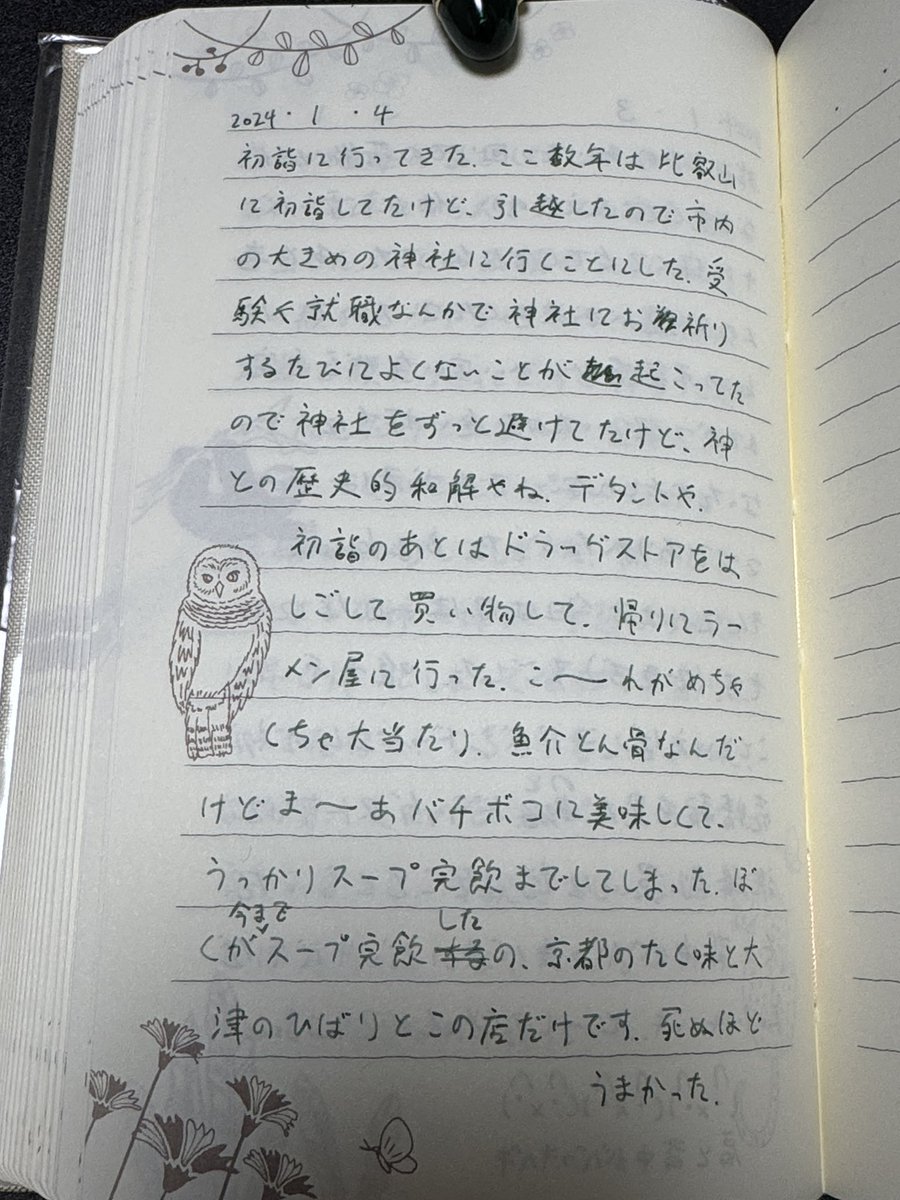 2024・1・4
初詣に行ってきた。ここ数年は比叡山
に初詣してたけど、引越したので市内
の大きめの神社に行くことにした。受
験や就職なんかで神社にお祈り
するたびによくないことが起こってた
ので神社をずっと避けてたけど、神
との歴史的和解やね。デタントや。
初詣のあとはドラッグストアをは
しごして買い物して、帰りにラー
メン屋に行った。こ〜れがめちゃ
くちゃ大当たり。魚介とん骨なんだ
けどま〜あバチボコに美味しくて、
うっかりスープ完飲までしてしまった。ぼ
くが今までスープ完飲したの、京都のたく味と大
津のひばりとこの店だけです。死ぬほど
うまかった。